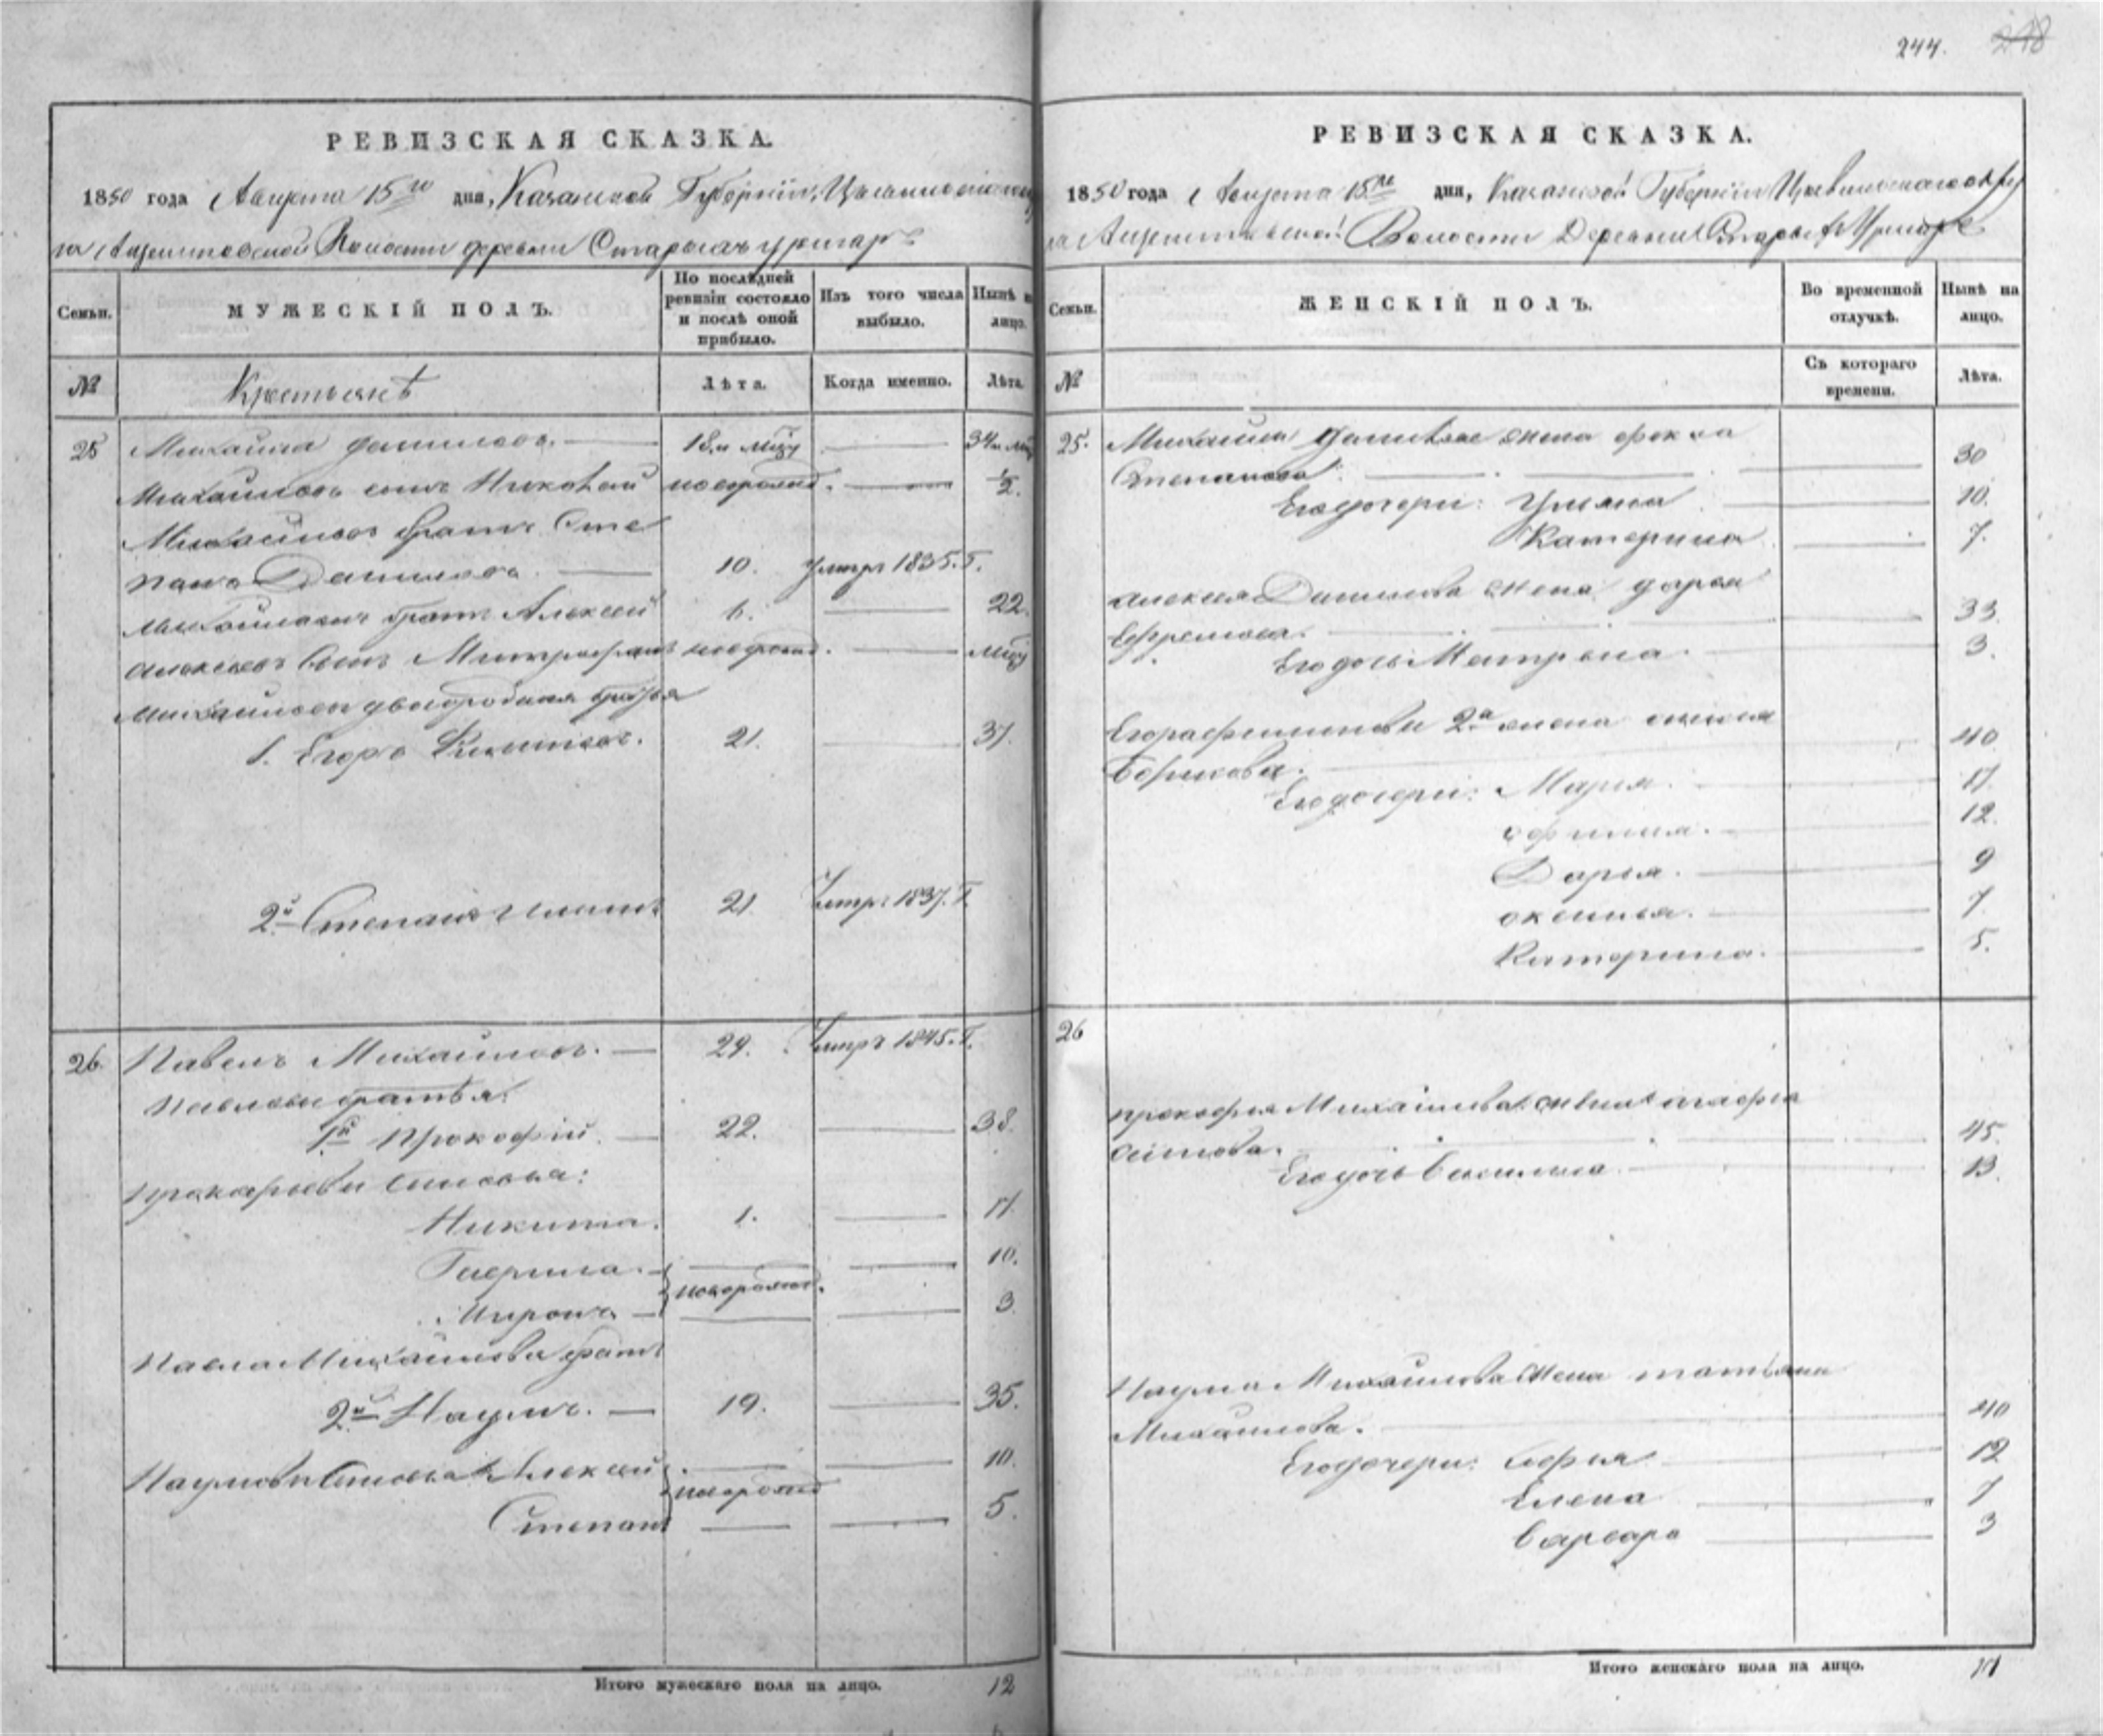 244.
218
РЕВИЗСКАЯ СКАЗКА.
1850 года Августа 15го дня, Казанской Губернiи,
Волости деревни Старыхъ Урмаръ
Семьи.
МУЖЕСКIЙ ПОЛЪ.
По послѣдней ревизiи состояло и послѣ оной прибыло.
Изъ того числа выбыло.
Нынѣ на лицо.
№
Крестьянѣ
Лѣта.
Когда именно.
Лѣта.
25 Михайла Даниловъ. 18. 34
Михайловъ сынъ Николай новорожд. ½.
Михайловъ братъ Сте
панъ Даниловъ 10. умеръ 1835. Г.
Михайловъ братъ Алексей 6. 22.
Алексеевъ сынъ Митрофанъ новорожд.
Михайловы двоюродныя братья
1. Егоръ 21. 37.
2й Степанъ 21 Умеръ 1837. Г.
26. Павелъ Михайловъ. 29. Умеръ 1845. Г.
Павловы братья.
1й Прокофiй. 22. 38.
Прокофьевы сыновья:
Никита. 1. 17.
Гаврила. 10.
новорожд.
Миронъ 3.
Павла Михайлова братъ
2й Наумъ. 19. 35.
Наумовы сыновья Алексей 10.
новорожд
Степанъ 5.
Итого мужескаго пола на лицо. 12
РЕВИЗСКАЯ СКАЗКА.
1850 года Августа 15го дня, Казанской Губернiи Цывильскаго
Волости Деревни Старыхъ Урмаръ
Семьи.
ЖЕНСКIЙ ПОЛЪ.
Во временной отлучкѣ.
Нынѣ на лицо.
№
Съ котораго времени.
Лѣта.
25. Михайлы Данилова жена
Степанова. 30
Его дочери: Ульяна 10.
Катерина 7.
Алексея Данилова жена Дарья
Ефремова. 33.
Его дочь Матрена. 3.
2я жена
Борисова. 40
Его дочери: Марья. 17
12.
Дарья. 9
оксинья. 7
Катерина. 5.
26
Прокофья Михайлова жена агафья
45.
Его дочь Василиса 13.
Наума Михайлова жена татьяна
Михайлова. 40
Его дочери: Софья 12
Елена 7
Варвара 3
Итого женскаго пола на лицо.